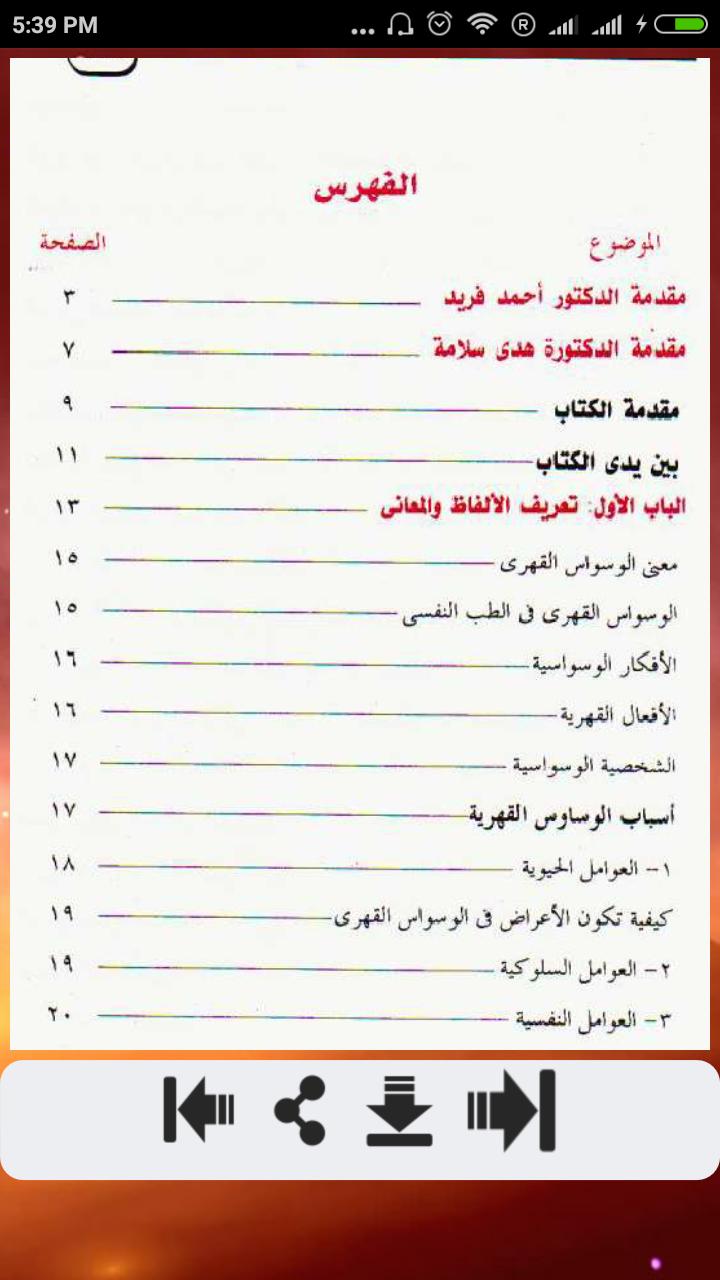 5:39 PM
الفهرس
الموضوع الصفحة
مقدمة الدكتور أحمد فريد ٣
مقدمة الدكتورة هدى سلامة ٧
مقدمة الكتاب ٩
بين يدى الكتاب ١١
الباب الأول: تعريف الألفاظ والمعانى ١٣
معنى الوسواس القهرى ١٥
الوسواس القهرى فى الطب النفسى ١٥
الأفكار الوسواسية ١٦
الأفعال القهرية ١٦
الشخصية الوسواسية ١٧
أسباب الوساوس القهرية ١٧
١- العوامل الحيوية ١٨
كيفية تكون الأعراض فى الوسواس القهرى ١٩
٢- العوامل السلوكية ١٩
٣- العوامل النفسية ٢٠